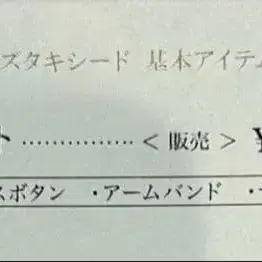 スタキシード 基本アイテム
ト ............... < 販売 > ¥
スボタン ・アームバンド ・